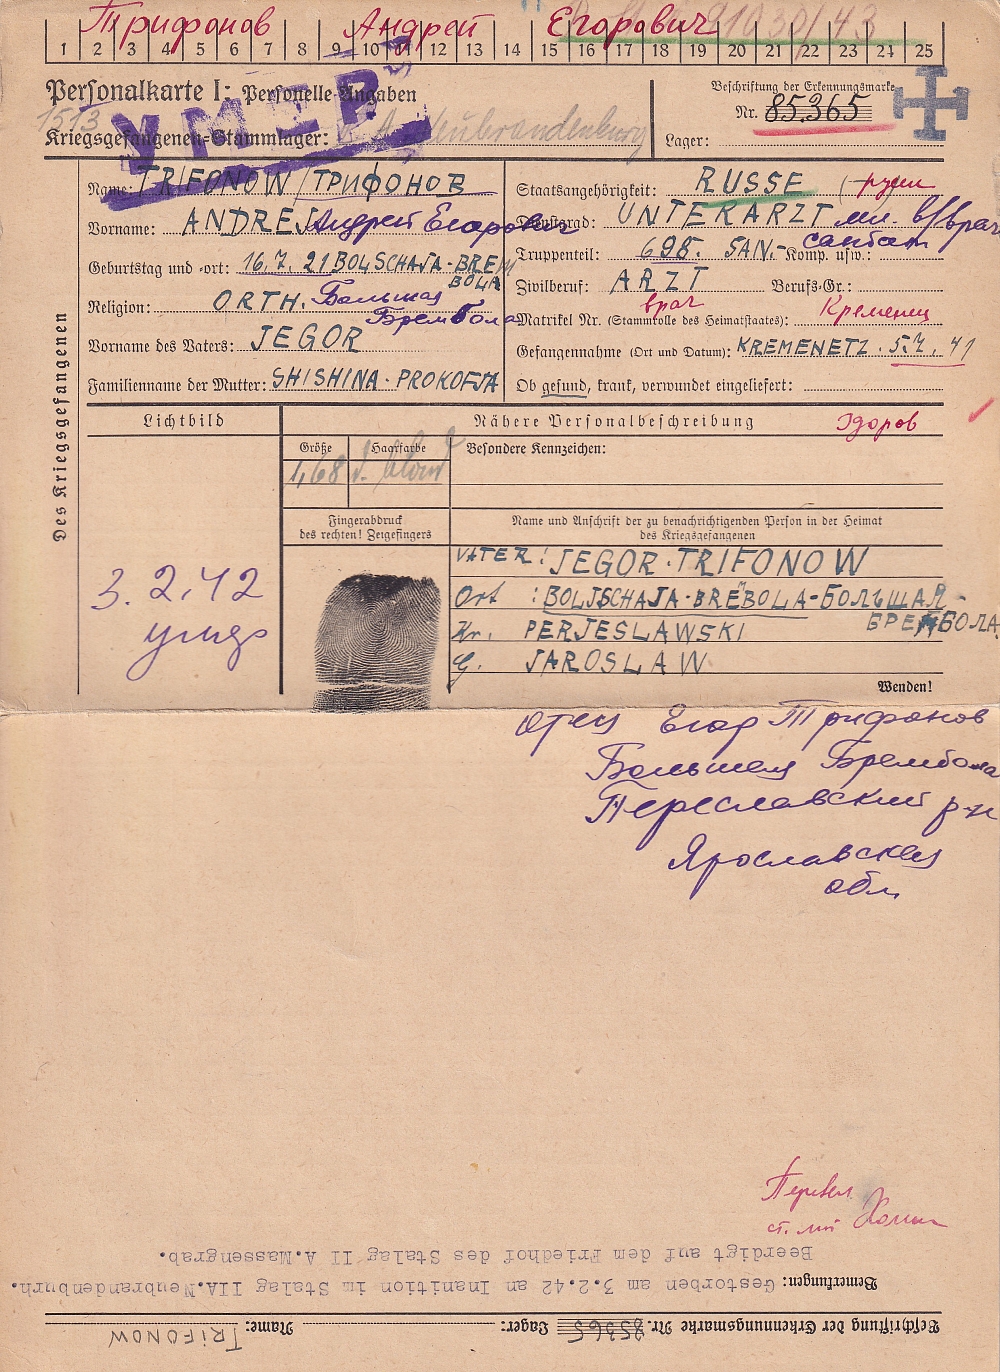 Трифонов Андрей Егорович
1 2 3 4 5 6 7 8 9 10 11 12 13 14 15 16 17 18 19 20 21 22 23 24 25
Personalkarte I: Personelle Angaben
УМЕР
1513
Kriegsgefangenen-Stammlager: Neubrandenburg
Beschriftung der Erkennungsmarke
Nr. 85365
Lager:
Des Kriegsgefangenen
Name: TRIFONOW /ТРИФОНОВ
Vorname: ANDREJ Андрей Егорович
Geburtstag und -ort: 16.7.21 BOLSCHAJA-BREM
BOLA
Religion: ORTH. Большая
Брембола
Vorname des Vaters: JEGOR
Familienname der Mutter: SHISHINA-PROKOFJA
Staatsangehörigkeit: RUSSE (русск
Dienstgrad: UNTERARZT мл. в/врач
Truppenteil: 698. SAN- Komp. usw.: санбат
Zivilberuf: ARZT Berufs-Gr.:
врач
Matrikel Nr. (Stammrolle des Heimatstaates): Кременец
Gefangennahme (Ort und Datum): KREMENETZ. 5.7.41
Ob gesund, krank, verwundet eingeliefert:
Здоров
Lichtbild
Nähere Personalbeschreibung
Größe Haarfarbe Besondere Kennzeichen:
1,68 d. blond
Fingerabdruck
des rechten! Zeigefingers
Name und Anschrift der zu benachrichtigenden Person in der Heimat
des Kriegsgefangenen
VATER: JEGOR. TRIFONOW
Ort: BOLJSCHAJA-BREBOLA-БОЛЬШАЯ-
БРЕМБОЛА
Kr. PERJESLAWSKI
G. JAROSLAW
3.2.42
Wenden!
отец Егор Трифонов
Большая Брембола
Переславский р-н
Ярославская
обл
Перевел
ст. л-т
Beschriftung der Erkennungsmarke Nr. 85365 Lager: Name: TRIFONOW
Bemerkungen: Gestorben am 3.2.42 an Inanition im Stalag IIA.Neubrandenburh.
Beerdigt auf dem Friedhof des Stalag II A.Massengrab.